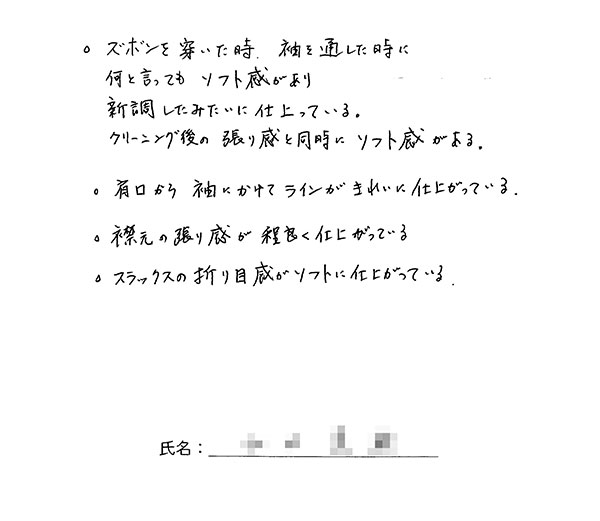 。ズボンを穿いた時、袖を通した時に
何と言ってもソフト感があり
新調したみたいに仕上っている。
クリーニング後の張り感と同時にソフト感がある。
。肩口から袖にかけてラインがきれいに仕上がっている.
。襟元の張り感が程良く仕上がっている
。スラックスの折り目感がソフトに仕上がっている.
氏名: